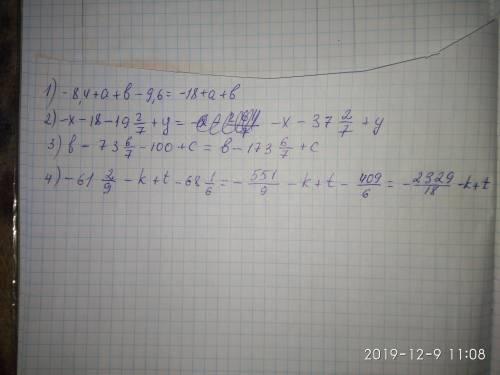 1) -8,4+a+b-9,6=-18+a+b
2) -x-18-19 2/7+y= -x-37 2/7+y
3) b-73 6/7-100+c=b-173 6/7+c
4) -61 2/9-k+t-68 1/6=-551/9-k+t-409/6=-2329/18-k+t
2019-12-9 11:08